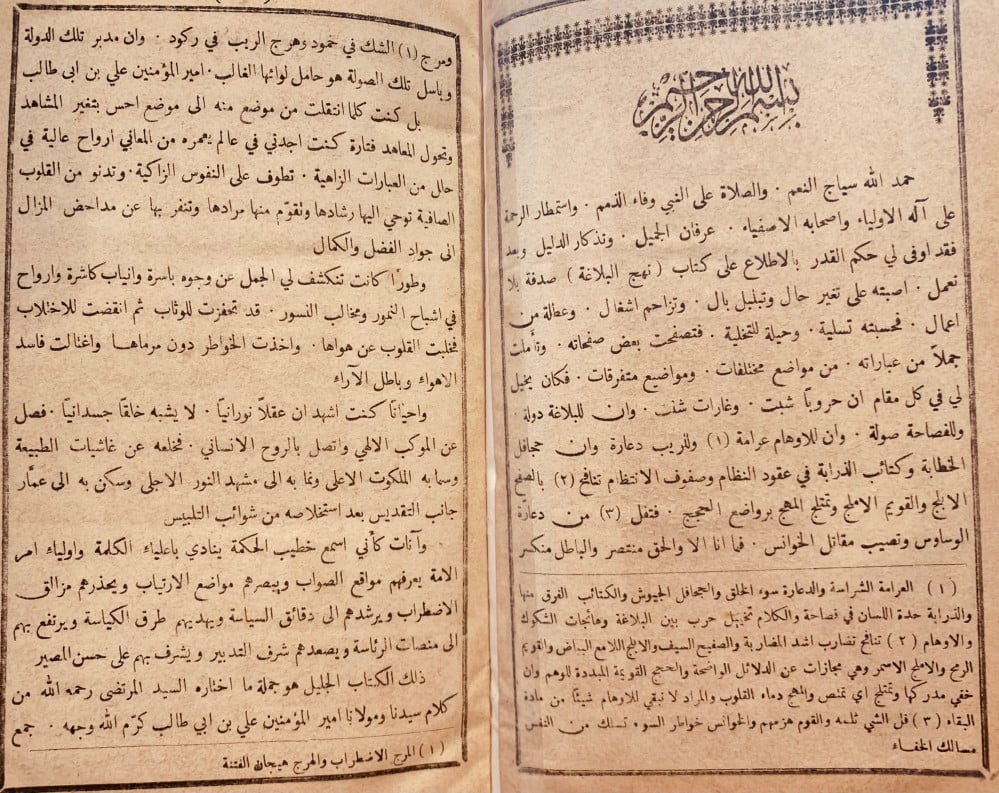 بسم الله الرحمن الرحيم
حمد الله سياج النعم . والصلاة على النبي وفاء الذمم . واستمطار الرحمة
على آله الاولياء واصحابه الاصفياء . عرفان الجميل . وتذكار الدليل وبعد
فقد اوفى لي حكم القدر بالاطلاع على كتاب ( نهج البلاغة ) صدفة بلا
تعمل . اصبته على تغير حال وتبلبل بال . وتزاحم اشغال . وعطلة من
اعمال . فحسبته تسلية . وحيلة للتخلية . فتصفحت بعض صفحاته . وتأملت
جملاً من عباراته . من مواضع مختلفات . ومواضيع متفرقات . فكان يخيل
لي في كل مقام ان حروبًا شبت . وغارات شنت . وان للبلاغة دولة .
وللفصاحة صولة . وان للاوهام عرامة (١) وللريب دعارة وان جحافل
الخطابة وكتائب الذرابة في عقود النظام وصفوف الانتظام تنافح (٢) بالصفيح
الابلج والقويم الاملج وتمتلج المهج برواضع الحجج . فتفل (٣) من دعارة
الوساوس وتصيب مقاتل الخوانس . فما انا الا والحق منتصر والباطل منكسر
( ١ ) العرامة الشراسة والدعارة سوء الخلق والجحافل الجيوش والكتائب الفرق منها
والذرابة حدة اللسان في فصاحة والكلام تخييل حرب بين البلاغة وهائجات الشكوك
والاوهام ( ٢ ) تنافح تضارب اشد المضاربة والصفيح السيف والابلج اللامع البياض والقويم
الرمح والاملج الاسمر وهي مجازات عن الدلائل الواضحة والحجج القويمة المبددة للوهم وان
خفي مدركها وتمتلج اي تمتص والمهج دماء القلوب والمراد لا تبقي للاوهام شيئًا من مادة
البقاء ( ٣ ) فل الشي ثلمه والقوم هزمهم والخوانس خواطر السوء تسلك من النفس
مسالك الخفاء
ومرج (١) الشك في خمود وهرج الريب في ركود . وان مدبر تلك الدولة
وباسل تلك الصولة هو حامل لوائها الغالب . امير المؤمنين علي بن ابي طالب
بل كنت كلما انتقلت من موضع منه الى موضع احس بتغير المشاهد
وتحول المعاهد فتارة كنت اجدني في عالم يعمره من المعاني ارواح عالية في
حلل من العبارات الزاهية . تطوف على النفوس الزاكية . وتدنو من القلوب
الصافية توحي اليها رشادها وتقوّم منها مرادها وتنفر بها عن مداحض المزال
الى جواد الفضل والكمال
وطورًا كانت تتكشف لي الجمل عن وجوه باسرة وانياب كاشرة وارواح
في اشباح النمور ومخالب النسور . قد تحفزت للوثاب ثم انقضت للاختلاب
فخلبت القلوب عن هواها . واخذت الخواطر دون مرماها واغتالت فاسد
الاهواء وباطل الآراء
واحيانًا كنت اشهد ان عقلاً نورانيًا . لا يشبه خلقًا جسدانيًا . فصل
عن الموكب الالهي واتصل بالروح الانساني . فخلعه عن غاشيات الطبيعة
وسما به الملكوت الاعلى ونما به الى مشهد النور الاجلى وسكن به الى عمّار
جانب التقديس بعد استخلاصه من شوائب التلبيس
وآنات كأني اسمع خطيب الحكمة ينادي باعلياء الكلمة واولياء امر
الامة يعرفهم مواقع الصواب ويبصرهم مواضع الارتياب ويحذرهم مزالق
الاضطراب ويرشدهم الى دقائق السياسة ويهديهم طرق الكياسة ويرتفع بهم
الى منصات الرئاسة ويصعدهم شرف التدبير ويشرف بهم على حسن المصير
ذلك الكتاب الجليل هو جملة ما اختاره السيد المرتضى رحمه الله من
كلام سيدنا ومولانا امير المؤمنين علي بن ابي طالب كرّم الله وجهه . جمع
( ١ ) المرج الاضطراب والهرج هيجان الفتنة